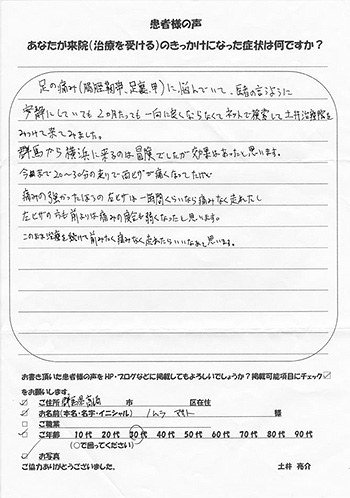 患者様の声
あなたが来院(治療を受ける)のきっかけになった症状は何ですか?
足の痛み(腸脛靭帯、足裏、甲)に悩んでいて、医者の言うように
安静にしていても2ヵ月たっても一向に良くならなくてネットで検索して土井治療院を
みつけて来てみました。
群馬から横浜に来るのは冒険でしたが効果はあったと思います。
今日まで20〜30分の走りで両ヒザが痛くなってたけど
痛みの強かったほうの左ヒザは一時間くらいなら痛みなく走れたし
右ヒザの方も前よりは痛みの度合も弱くなったと思います。
このまま治療を続けて前みたく痛みなく走れたらいいなあと思います。
お書き頂いた患者様の声をHP・ブログなどに掲載してもよろしいでしょうか?掲載可能項目にチェック
をお願いします。
ご住所 群馬県 市 区在住
お名前(本名・名字・イニシャル) 様
ご職業
ご年齢 10代 20代 30代 40代 50代 60代 70代 80代
(○で囲ってください)
お写真
ご協力ありがとうございました。 土井 亮介